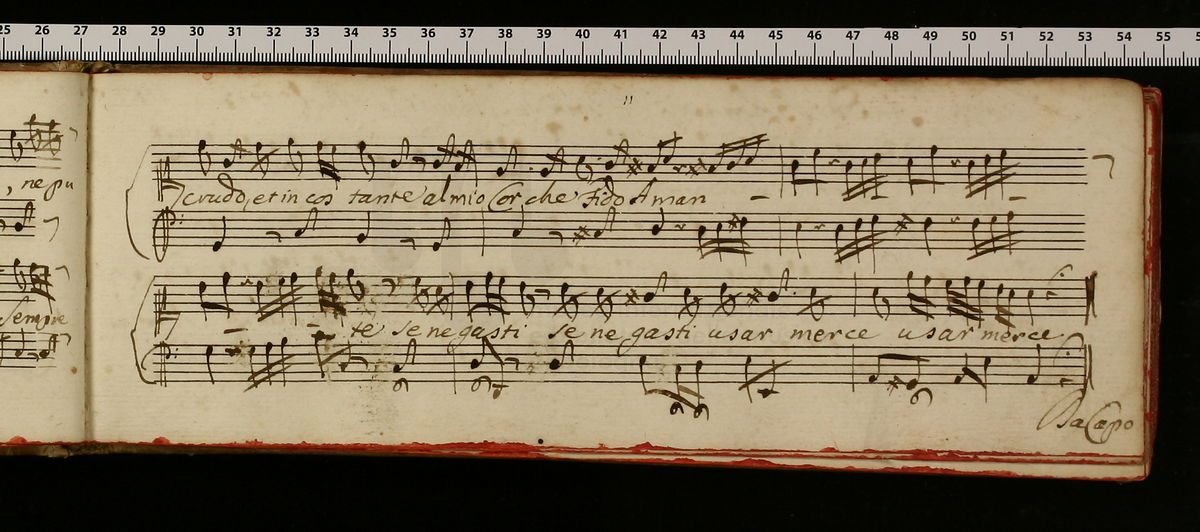 25 26 27 28 29 30 31 32 33 34 35 36 37 38 39 40 41 42 43 44 45 46 47 48 49 50 51 52 53 54 55
11
, ne pu
crudo, et in cos tante al mio Cor che fido Aman
Sempre
te se negasti se ne gasti usar merce usar merce
Da Capo